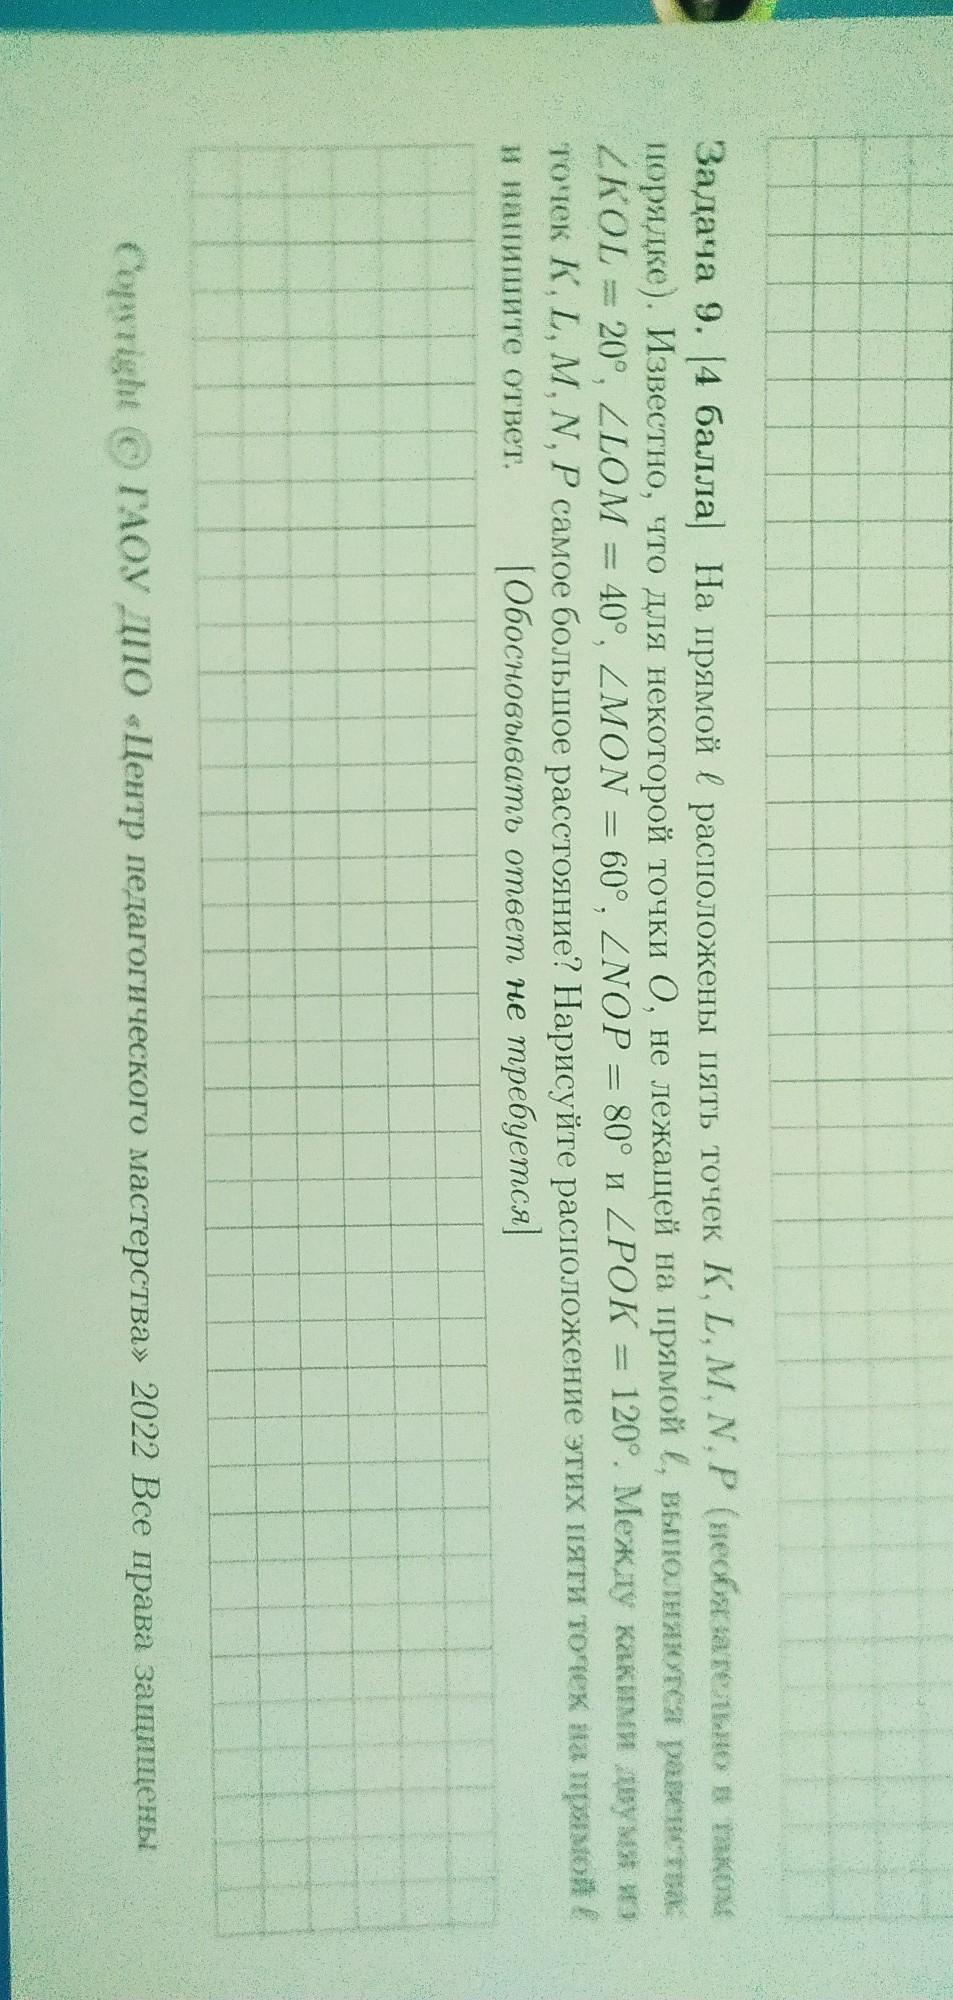 Задача 9. [4 балла] На прямой ℓ расположены пять точек K, L, M, N, P (необязательно в таком
порядке). Известно, что для некоторой точки O, не лежащей на прямой ℓ, выполняются равенства:
∠KOL = 20°, ∠LOM = 40°, ∠MON = 60°, ∠NOP = 80° и ∠POK = 120°. Между какими двумя из
точек K, L, M, N, P самое большое расстояние? Нарисуйте расположение этих пяти точек на прямой ℓ
и напишите ответ. [Обосновывать ответ не требуется]
Copyright © ГАОУ ДПО «Центр педагогического мастерства» 2022 Все права защищены